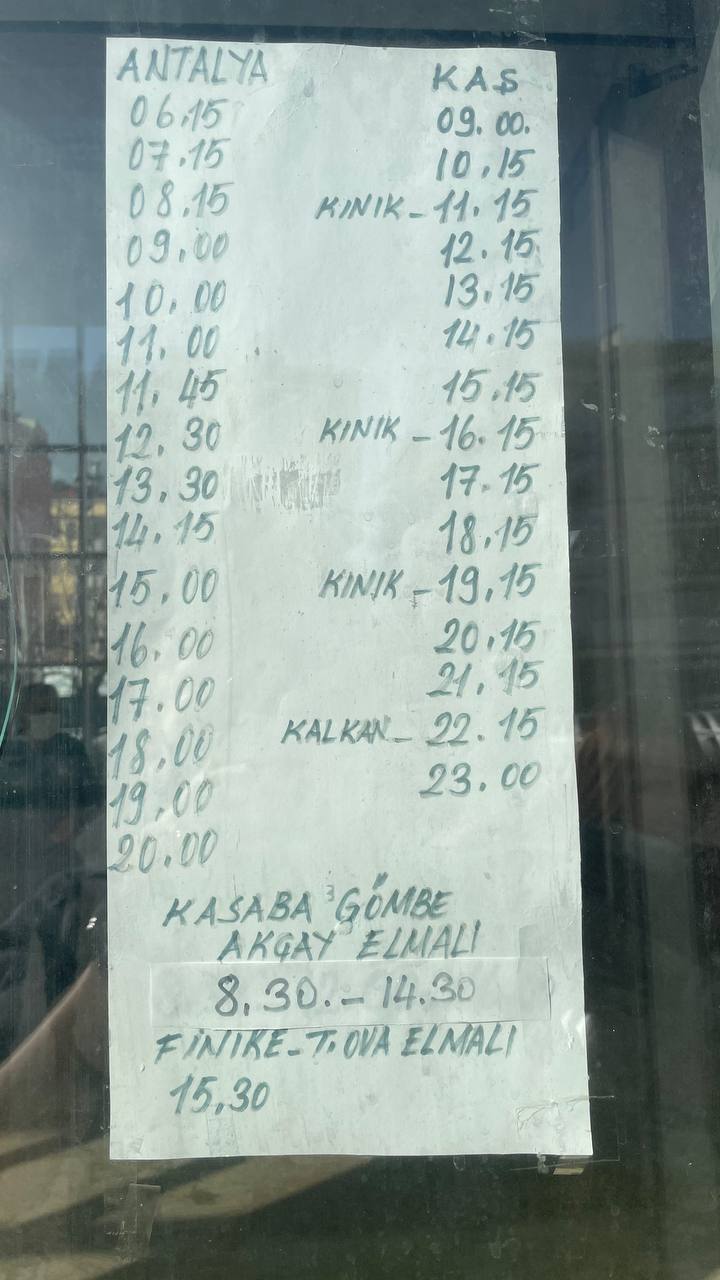 ANTALYA
06.15
07.15
08.15
09.00
10.00
11.00
11.45
12.30
13.30
14.15
15.00
16.00
17.00
18.00
19.00
20.00
KAŞ
09.00.
10.15
KINIK-11.15
12.15
13.15
14.15
15.15
KINIK-16.15
17.15
18.15
KINIK-19.15
20.15
21.15
KALKAN-22.15
23.00
KASABA GÖMBE
AKÇAY ELMALI
8.30.-14.30
FİNİKE-T.OVA ELMALI
15.30